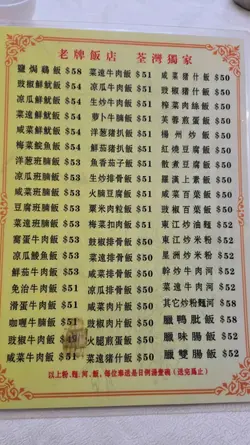 老牌飯店 荃灣獨家
鹽焗鷄飯 $58 菜遠牛肉飯 $51 咸菜猪什飯 $50
豉椒鮮魷飯 $54 凉瓜牛肉飯 $51 豉椒猪什飯 $50
凉瓜鮮魷飯 $54 生炒牛肉飯 $51 榨菜肉絲飯 $50
菜遠鮮魷飯 $54 萝卜牛腩飯 $51 芙蓉煎蛋飯 $50
咸菜鮮魷飯 $54 洋葱猪扒飯 $51 楊州炒飯 $50
梅菜鯇魚飯 $51 鮮茄猪扒飯 $51 紅燒豆腐飯 $50
洋葱班腩飯 $53 魚香茄子飯 $51 散煮豆腐飯 $50
凉瓜班腩飯 $53 生炒排骨飯 $51 羅漢上素飯 $50
咸菜班腩飯 $53 火腩豆腐飯 $51 咸菜百葉飯 $50
豆腐班腩飯 $53 粟米肉粒飯 $51 豉椒百葉飯 $50
菜遠班腩飯 $53 梅菜扣肉飯 $51 東江炒油麵 $52
窩蛋牛肉飯 $53 豉椒排骨飯 $50 東江炒米粉 $52
凉瓜鯪魚飯 $51 菜遠排骨飯 $50 星洲炒米粉 $52
鮮茄牛肉飯 $51 咸菜排骨飯 $50 幹炒牛肉河 $52
免治牛肉飯 $51 凉瓜排骨飯 $50 菜遠牛肉河 $52
滑蛋牛肉飯 $51 咸菜肉片飯 $50 其它炒粉麵河 $58
咖喱牛腩飯 $51 豉椒肉片飯 $50 臘鴨肶飯 $58
豉椒牛肉飯 $51 火腿煎蛋飯 $50 臘味腸飯 $52
咸菜牛肉飯 $51 菜遠猪什飯 $50 臘雙腸飯 $52
以上粉、麵、河、飯，每位奉送是日例湯壹碗（送完爲止）